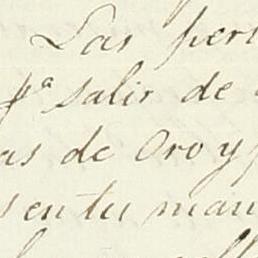 Las pers
pª salir de
as de Oro y
s en tu man